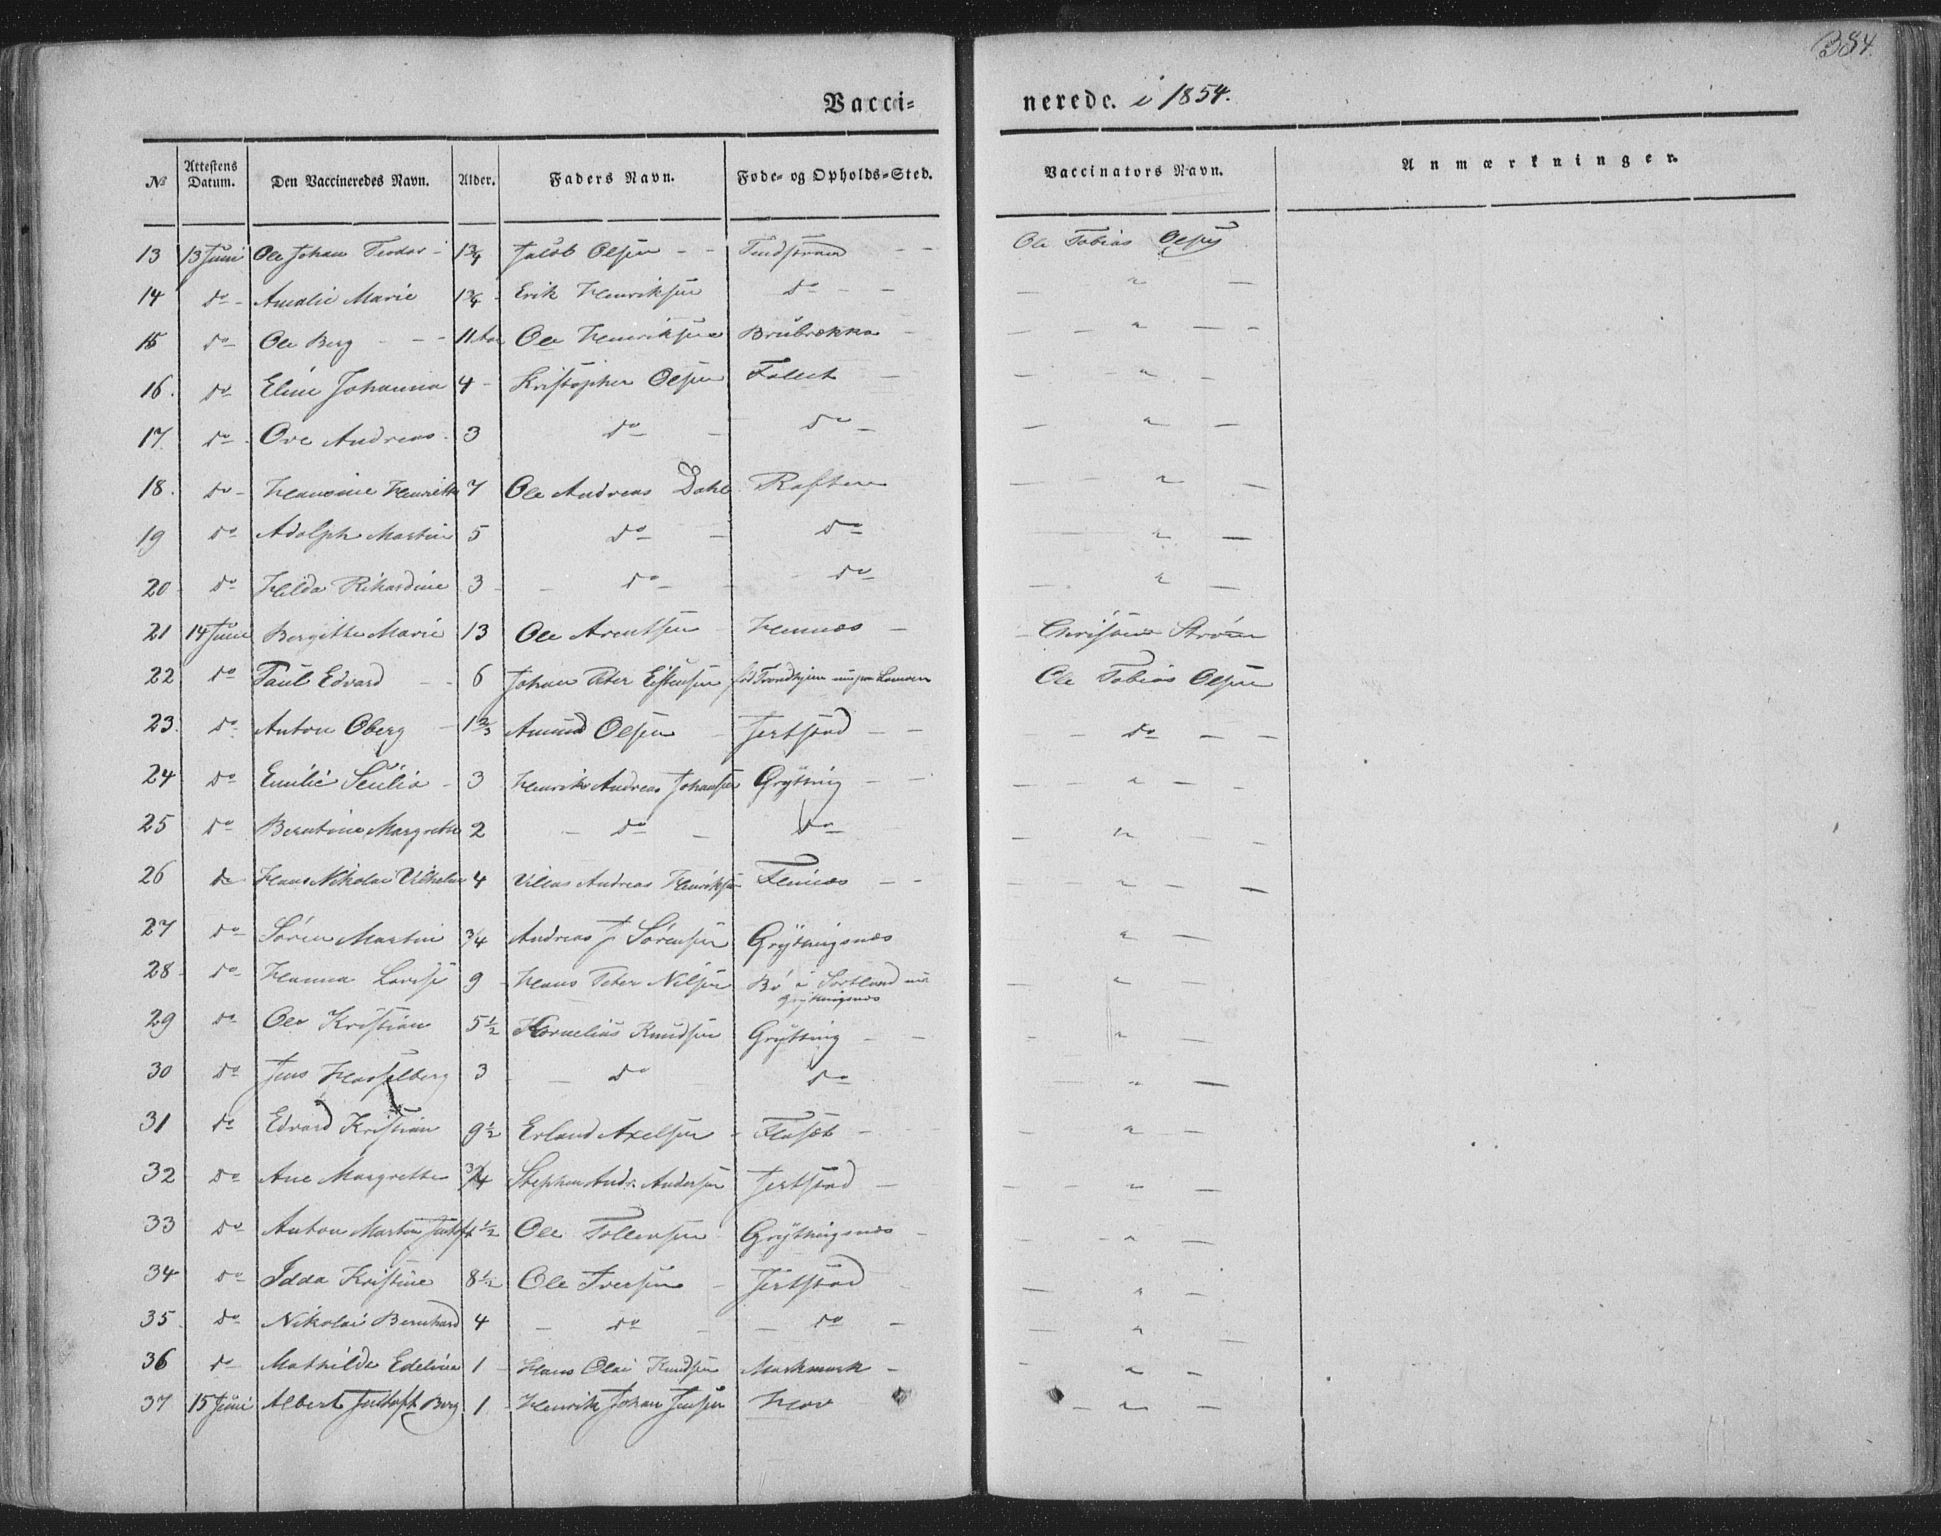 384.
Vacci= nerede. i 1854.
No Attestens Datum. Den Vaccineredes Navn. Alder. Faders Navn. Føde= og Opholds=Sted. Vaccinators Navn. Anmærkninger.
13 13 Juni Ole Johan Teodor - 1 3/4 Jakob Olsen - - Tindstrand - - Ole Tobias Olsen
14 do - Amalie Marie 1 3/4 - Erik Henriksen do - - — " —
15 do Ole Berg - - - 11 Ole Henriksen Brubrækka - - - " — -
16. do Eline Johanna 4 - Kristopher Olsen - - " -
17. do - Ove Andreas. 3 do - do - - - " -
18. do - Hansine Henritte 7 Ole Andreas Dahl Raften - - " —
19 do Adolph Martin 5 do - do - - " —
20 do Hilda Rikardine 3 - - do - - do - - " —
21 14 Juni Bergitte Marie 13 Ole Arentsen - Hennes - - Strøm
22 do Paul Edvard - - 6 Johan Peter Trondhjem Ole Tobias Olsen
23. do Anton Oberg - 1 2/3 Amund Olsen - Jertstad - - - - do - -
24 do Emilie - 3 Henrik Andreas Johansen Grytting - - - - " - -
25 do Berntine Margrethe 2 - do - do - - " -
26 do Hans Nikolai Vilhelm 4 Vilias Andreas Henriksen - - - - " - -
27 do Søren Martin 3/4 Andreas J Sørensen Grytningsnæs " —
28 - do - Hanna Lovise 9 - Hans Peter Nilsen Bø i Sortland nu Grytningsnæs - " —
29 do Ole Kristian 5 1/2 Kornelius Knudsen Grytting - - - " —
30 do Jens Hasselberg 3 - - do do - - " —
31 do Edvard Kristian 9 1/2 Erland Axelsen - Flasæt - - - - " —
32 do Ane Margrethe 3/4 Stephen Andr. Andersen Jertstad - - - - " —
33 do Anton Martin 1/2 Ole Tollevsen Grytningsnæs - - - " —
34 do Idda Kristine 8 1/2 Ole Iversen - Jertstad - " —
35. do Nikolai Bernhard 4 - do - - do - - - " —
36 do Mathilde Edelvine 1 - Hans Olai Knudsen - - " -
37 15 Juni Albert Berg 1 - Henrik Johan Jensen Hov - " —